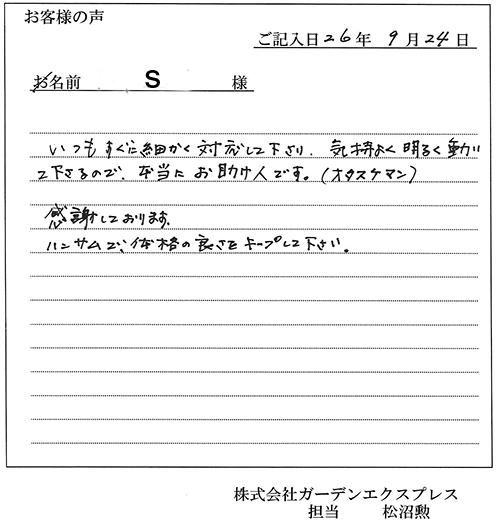 お客様の声
ご記入日26年 9月24日
お名前 S 様
いつもすぐに細かく対応して下さり、気持よく明るく動い
て下さるので、本当にお助け人です。(オタスケマン)
感謝しております。
ハンサムで、体格の良さをキープして下さい。
株式会社ガーデンエクスプレス
担当 松沼勲